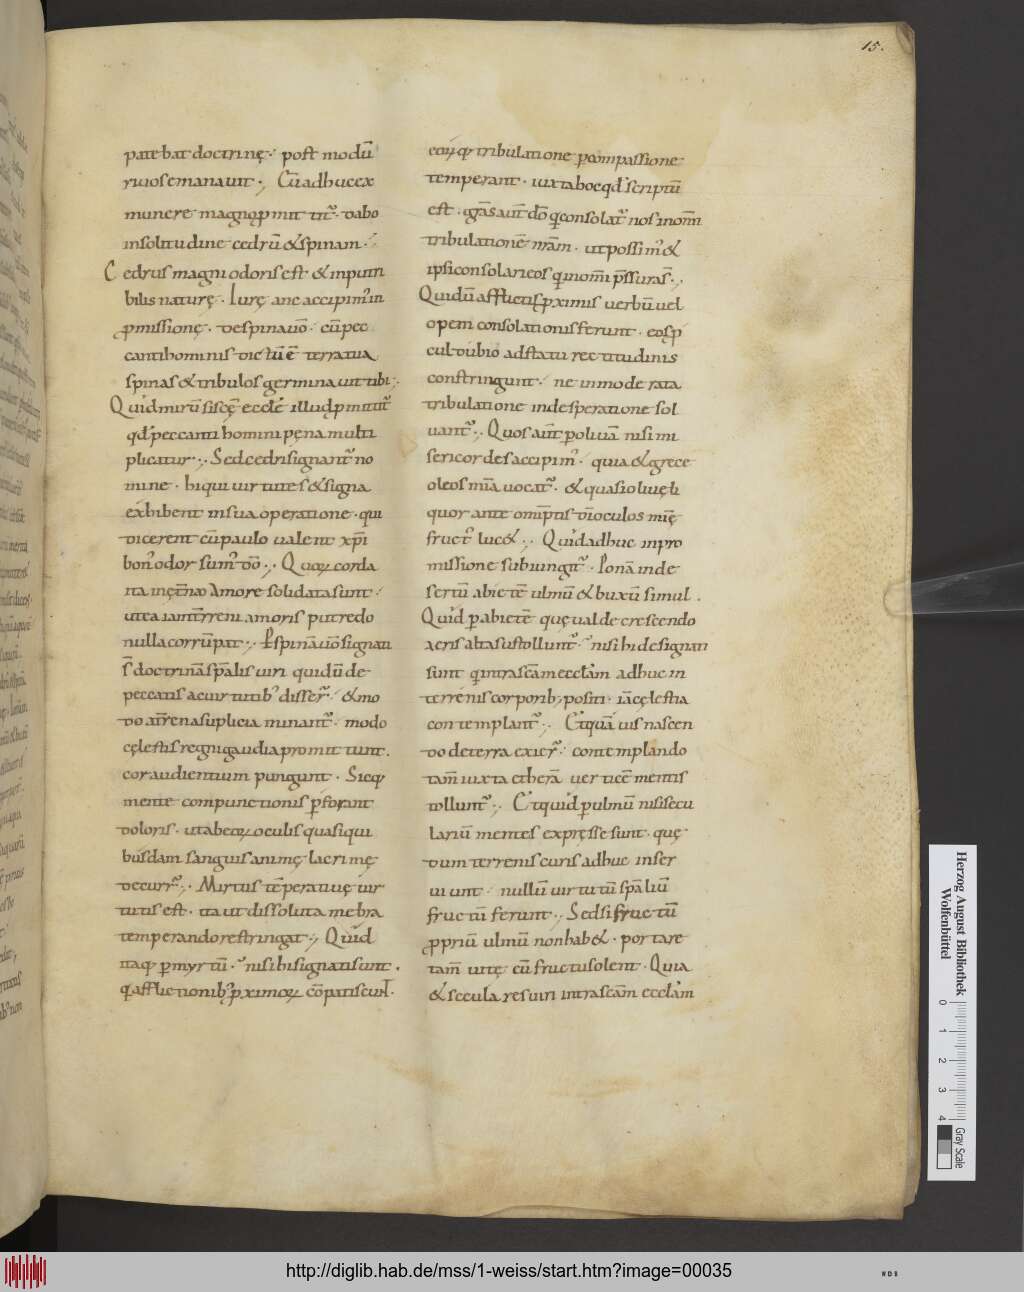 15.
patebat doctrinę · post modū
rivos emanavit · Cū adhuc ex
munere magno ꝓmittit · dabo
in solitudine cedrū & spinam ·
Cedrus magni odoris est & inputri
bilis naturę · Iurę anc accipim᾽ in
ꝓmissionę · De spina v̄o · cū pec
canti homini sit dictū ē terra tua
spinas & tribulos germinavit tibi ·
Quid mirū si scę̄ ecclę illud ꝓmittit᷒
qd̄ peccanti homini pęna multi
plicatur · Sed cedri signant᷒ no
mine · hi qui virtutes & signa
exhibent in sua operatione · qui
dicere nt cū paulo valent xp̄i
bon᾽ odor sum᾽ dō · Quoꝝ corda
ita in ęt̄no amore solidata sunt
ut ea iam t̄rreni amoris putredo
nulla corrūpat · P spinā v̄o signati
s̄ doctrinā sp̄alis viri qui dū de
peccatis ac virtutib᾽ disser᷒ · & mo
do æt̄rena suplicia minant᷒ · modo
cęlestis regni gaudia promittunt ·
cor audientium pungunt · Sicq
mente compunctionis ꝑforant
doloris · ut ab eoꝝ oculis quasi qui
busdam sanguis animę lacrimę
decurr᷒ · Mirtus tēperativę vir
tutis est · ita ut dissoluta mēbra
temperando restringat · Quid
itaq ꝑ myrtū · nisi hi signati sunt ·
q afflictionib᾽ ꝓximoꝝ cōpati sciunt ·
eoꝝq tribulatione ꝑ compassione
temperant · iuxta hoc qd̄ scriptū
est · grās aut̄ dō q consolat᷒ nos in om̄i
tribulationē nr̄am · ut possim᾽ &
ipsi consolari eos q in om̄i p̄ssura s̄ ·
Qui dū afflictis ꝓximis verbū vel
opem consolationis ferunt · eos ꝓ
cul dubio ad statū rectitudinis
constringunt · ne inmoderata
tribulatione in desperatione sol
vant᷒ · Quos aut̄ ꝑ olivā nisi mi
sericordes accipim᾽ · quia & grece
oleos mīa vocat᷒ · & quasi olivę li
quor ante omīptis d̄i oculos mīę
fruct᾽ luc& · Quid adhuc in pro
missione subiungit᷒ · Ponā in de
sertū abietē ulmū & buxū simul ·
Quid ꝑ abietē quę valde crescendo
aeris alta sustollunt᷒ · nisi hi designan
sunt q intra scām ecclām adhuc in
terrenis corporib᾽ positi · iā cęlestia
contemplant᷒ · Et quā vis nascen
do de terra exier᷒ · contemplando
tam̄ iuxta etherā verticē mentis
tollunt᷒ · Et quid ꝑ ulmū nisi secu
lariū mentes expręsse sunt · quę
dum terrenis curis adhuc inser
viunt · nullū virtutū spāliū
fructū ferunt · Sed si fructū
ꝓpriū ulmū non hab& · portare
tam̄ vitę cū fructu solent · Quia
& seculares viri intra scām ecclām
Herzog August Bibliothek
Wolfenbüttel
0 1 2 3 4
Gray Scale
http://diglib.hab.de/mss/1-weiss/start.htm?image=00035